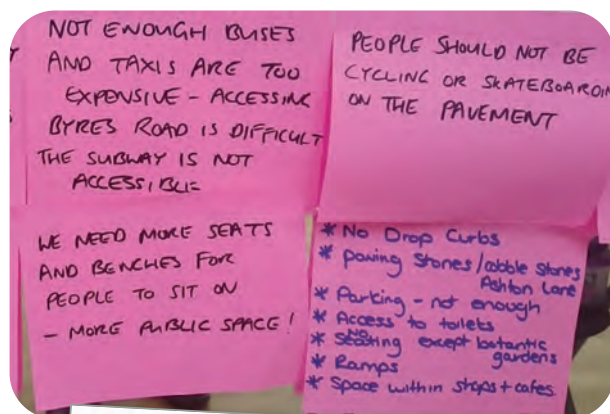 NOT ENOUGH BUSES
AND TAXIS ARE TOO
EXPENSIVE - ACCESSING
BYRES ROAD IS DIFFICULT
THE SUBWAY IS NOT
ACCESSIBLE
PEOPLE SHOULD NOT BE
CYCLING OR SKATEBOARDIN
ON THE PAVEMENT
WE NEED MORE SEATS
AND BENCHES FOR
PEOPLE TO SIT ON
- MORE PUBLIC SPACE!
* No Drop Curbs
* paving Stones/cobble stones
Ashton Lane
* Parking - not enough
* Access to toilets
* No Seating except botantic
gardens
* Ramps
* Space within shops + cafes.